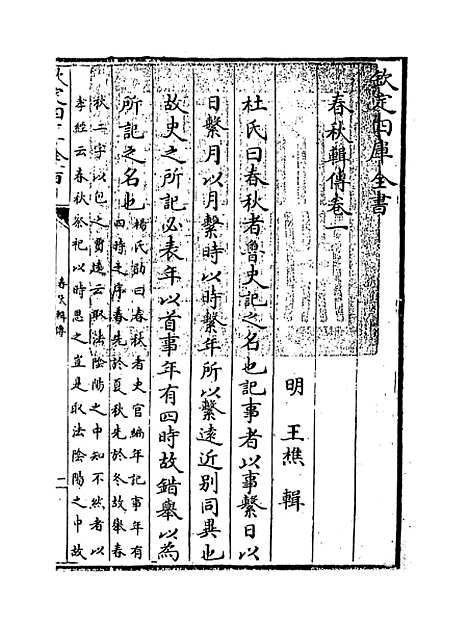 欽定四庫全書
春秋輯傳卷一
明 王樵 輯
杜氏曰春秋者魯史記之名也記事者以事繫日以
日繫月以月繫時以時繫年所以繫遠近別同異也
故史之所記必表年以首事年有四時故錯舉以為
所記之名也楊氏勛曰春秋者史官編年記事年有
四時之序春先於夏秋先於冬故舉春
秋二字以包之賈逵云取法隂陽之中知不然者以
孝經云春秋祭祀以時思之豈是取法隂陽之中故
春秋輯傳